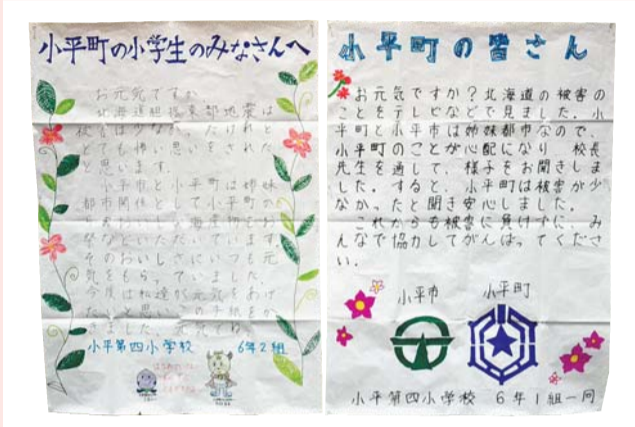 小平町の小学生のみなさんへ
お元気ですか
北海道胆振東部地震は
被害は少なかったけれど
とても怖い思いをされた
と思います。
小平市と小平町は姉妹
都市関係として小平町の
海産物をお
祭などでいただいています
そのおいしさにいつも元
気をもらっていました。
今度は私達が元気をあげ
たい
きました。元気でね。
小平第四小学校 6年2組
小平町の皆さん
お元気ですか?北海道の被害の
ことをテレビなどで見ました。小
平町と小平市は姉妹都市なので、
小平町のことが心配になり 校長
先生を通して、様子をお聞きしま
した。すると、小平町は被害が少
なかったと聞き安心しました。
これからも被害に負けずに、み
んなで協力してがんばってくださ
い。
小平市 小平町
小平第四小学校 6年1組一同